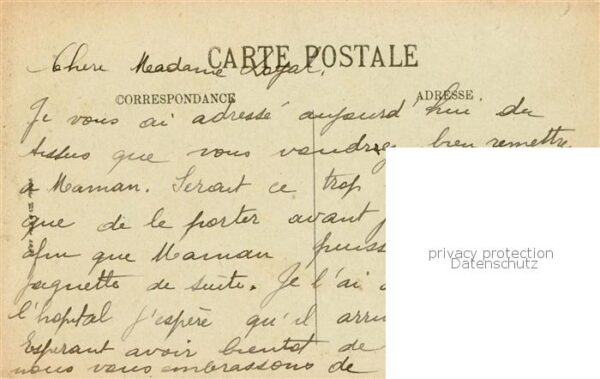 CARTE POSTALE
Chere Madame Loyal.
CORRESPONDANCE
ADRESSE
Je vous ai adressé aujourd'hui du
tissus que vous voudrez bien remettre
a Maman. Serait ce trop
que de le porter avant
afin que Maman puiss
jaquette de suite. Je l'ai
l'hopital j'espère qu'il arriv
Esperant avoir bientot de
nous vous embrassons de
privacy protection
Datenschutz